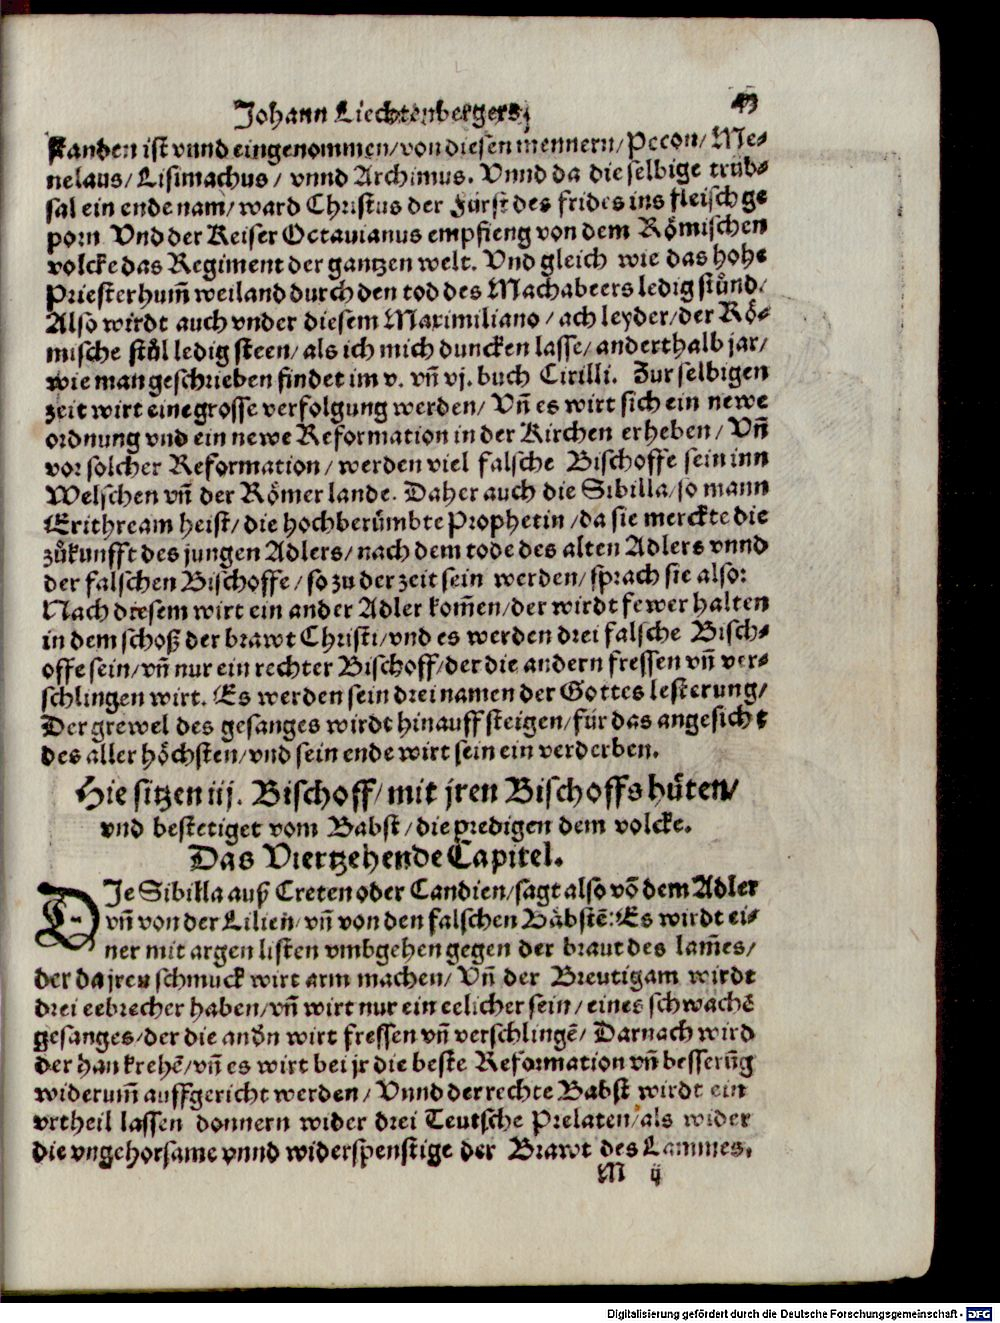 Johann Liechtenbergers, 43
standen ist vnnd eingenommen/von diesen mennern/Pecon/Me⸗
nelaus/Lisimachus/ vnnd Archimus. Vnnd da die selbige trüb⸗
sal ein ende nam/ward Christus der Fürst des frides ins fleisch ge
porn Vnd der Keiser Octauianus empfieng von dem Römischen
volcke das Regiment der gantzen welt. Vnd gleich wie das hohe
Priesterhum̃ weiland durch den tod des Machabeers ledig stůnd/
Also wirdt auch vnder diesem Maximiliano/ach leyder/der Rö⸗
mische stůl ledig steen/als ich mich duncken lasse/anderthalb jar/
wie man geschrieben findet im v. vñ vj. buch Cirilli. Zur selbigen
zeit wirt eine grosse verfolgung werden/ Vñ es wirt sich ein newe
ordnung vnd ein newe Reformation in der Kirchen erheben/ Vñ
vor solcher Reformation/werden viel falsche Bischoffe sein inn
Welschen vñ der Römer lande. Daher auch die Sibilla/so mann
Erithream heist/die hochberümbte Prophetin/da sie merckte die
zůkunfft des jungen Adlers/nach dem tode des alten Adlers vnnd
der falschen Bischoffe/so zu der zeit sein werden/sprach sie also:
Nach diesem wirt ein ander Adler kom̃en/der wirdt fewer halten
in dem schoß der brawt Christi/vnd es werden drei falsche Bisch⸗
offe sein/vñ nur ein rechter Bischoff/der die andern fressen vñ ver⸗
schlingen wirt. Es werden sein drei namen der Gottes lesterung/
Der grewel des gesanges wirdt hinauff steigen/für das angesicht
des aller höchsten/vnd sein ende wirt sein ein verderben.
Hie sitzen iij. Bischoff/mit jren Bischoffs hüten/
vnd bestetiget vom Babst/die predigen dem volcke.
Das Viertzehende Capitel.
DJe Sibilla auß Creten oder Candien/sagt also võ dem Adler
vñ von der Lilien/vñ von den falschen Bäbstẽ: Es wirdt ei⸗
ner mit argen listen vmbgehen gegen der braut des lam̃es/
der da jren schmuck wirt arm machen/ Vñ der Breutigam wirdt
drei eebrecher haben/vñ wirt nur ein eelicher sein/eines schwachẽ
gesanges/der die andn̄ wirt fressen vñ verschlingẽ/ Darnach wird
der han krehẽ/vñ es wirt bei jr die beste Reformation vñ besserũg
widerum̃ auffgericht werden/ Vnnd der rechte Babst wirdt ein
vrtheil lassen donnern wider drei Teutsche Prelaten/als wider
die vngehorsame vnnd widerspenstige der Brawt des Lammes.
M ij
Digitalisierung gefördert durch die Deutsche Forschungsgemeinschaft - DFG